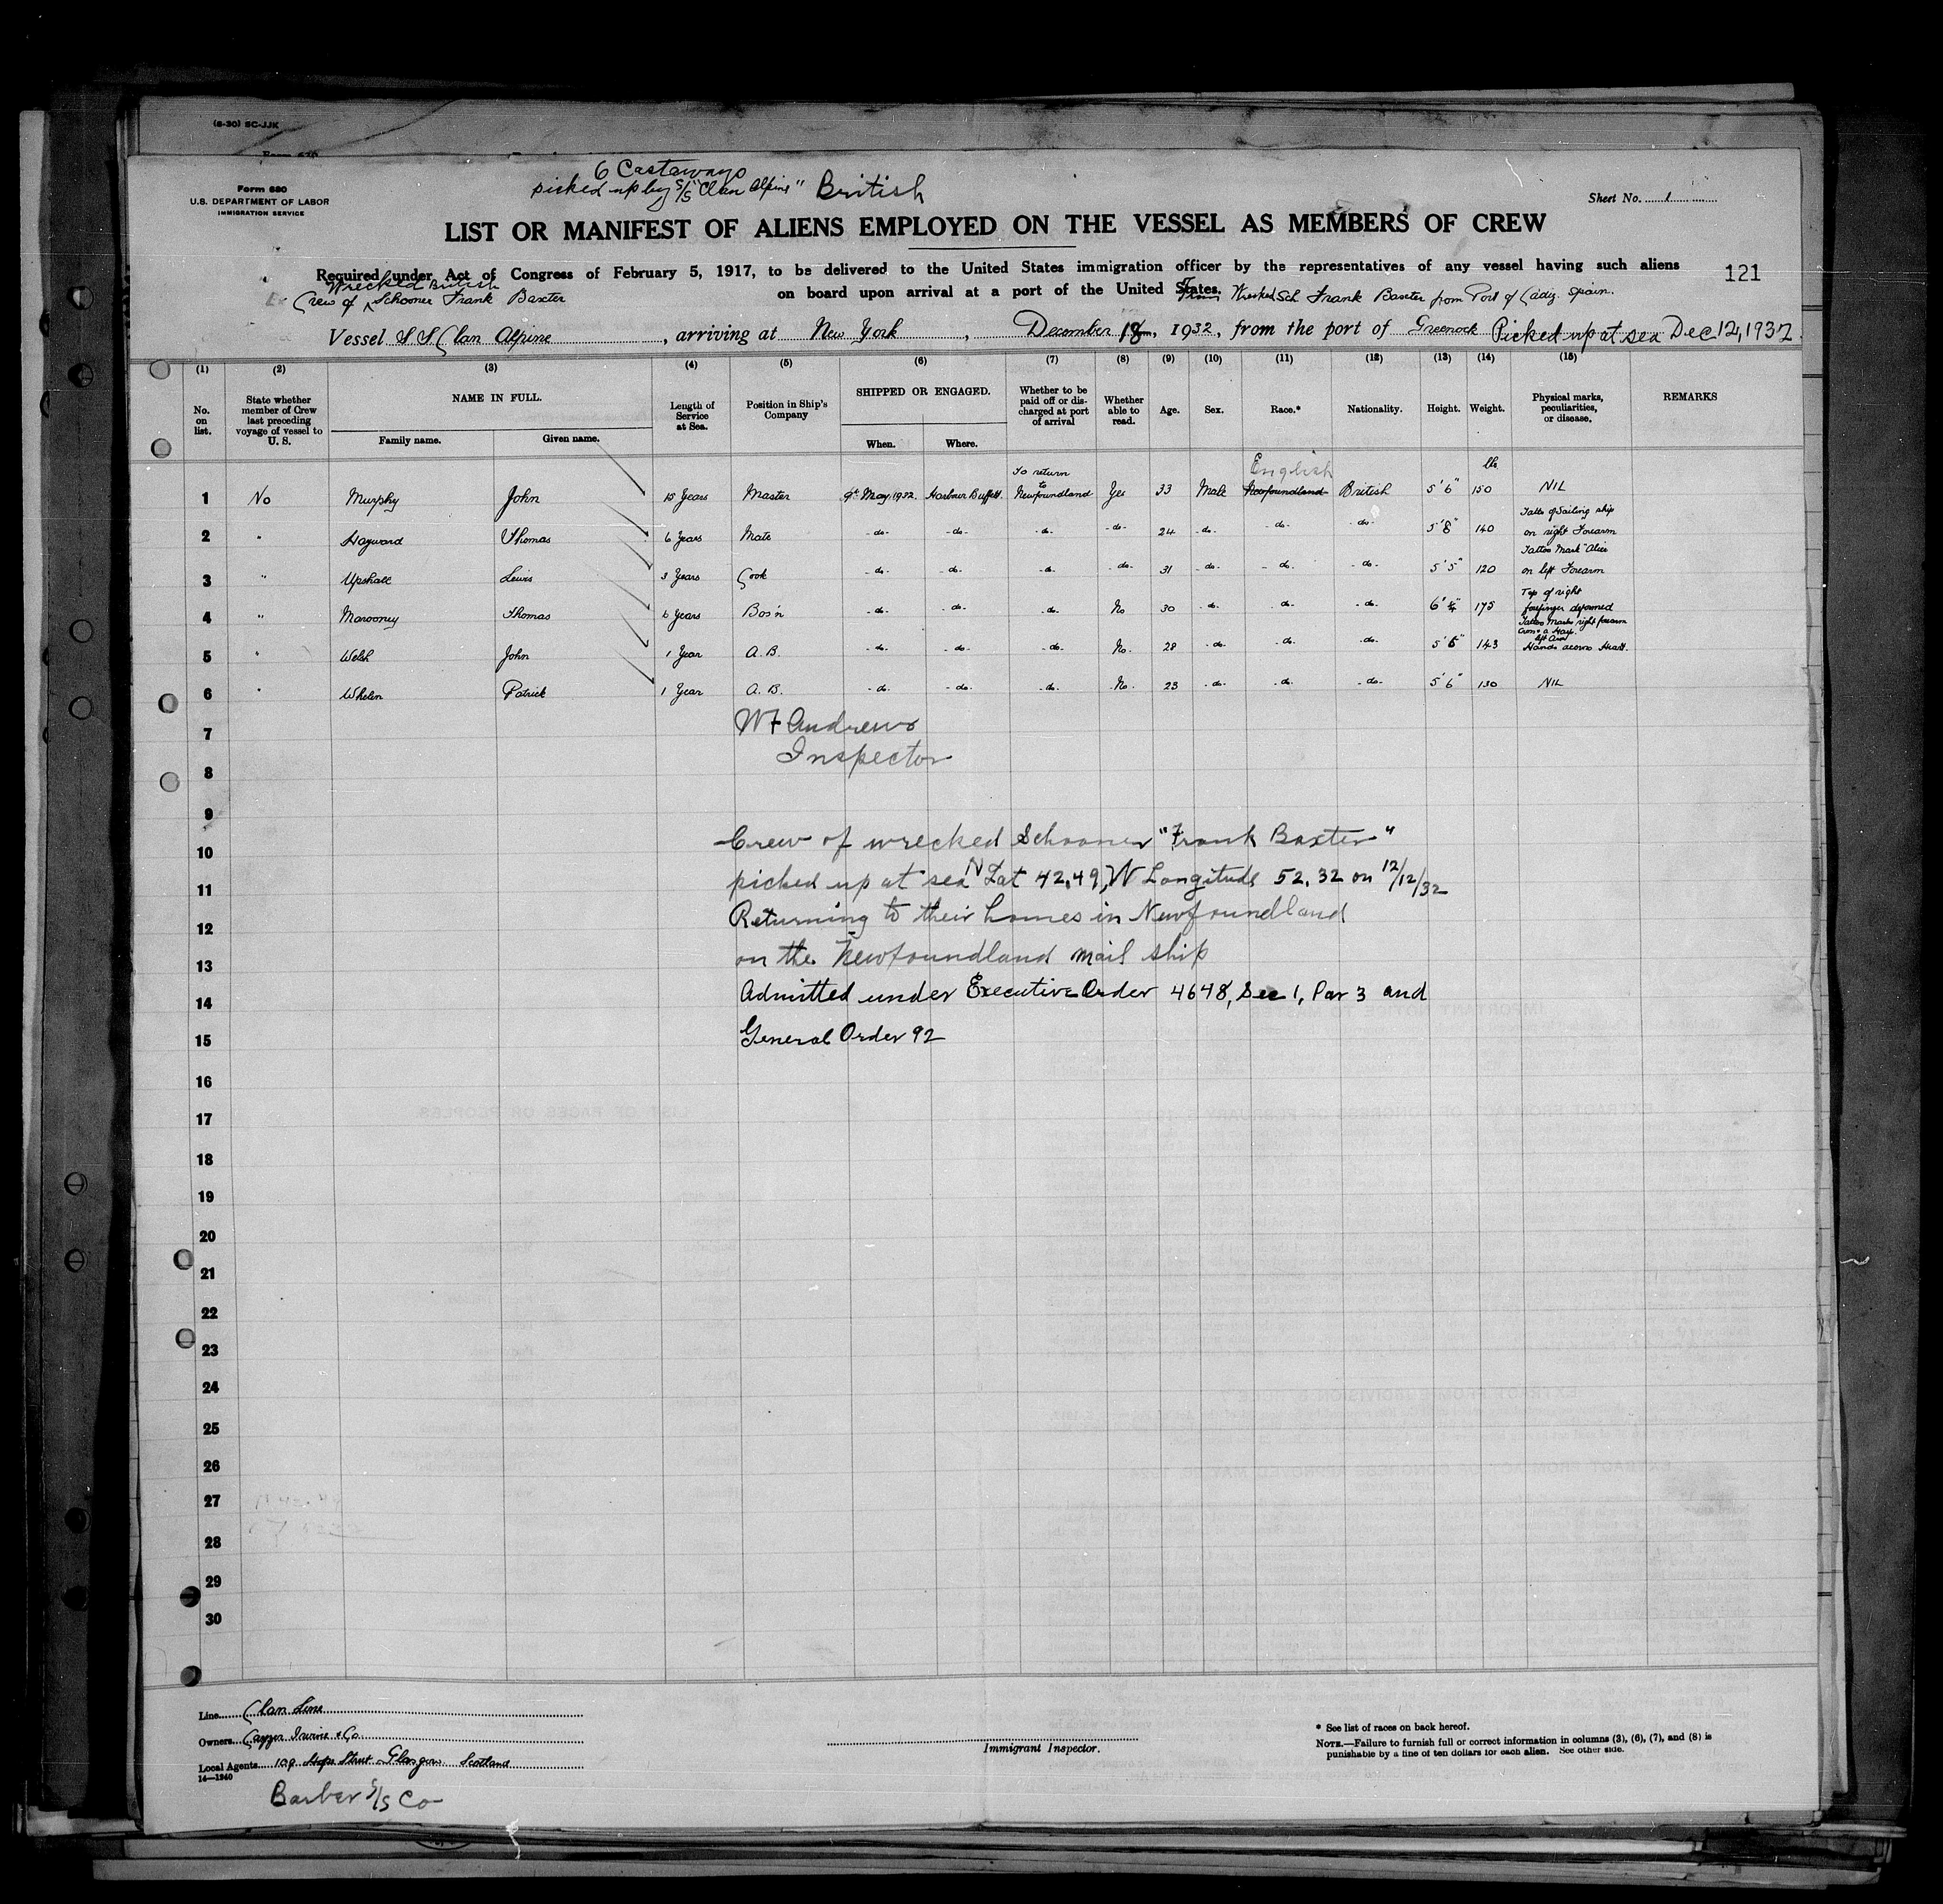 (8-30) SC-JJK
6 Castaways
picked up by S/S "Clan Alpine" British
Form 680
U.S. DEPARTMENT OF LABOR
IMMIGRATION SERVICE
Sheet No. 1
LIST OR MANIFEST OF ALIENS EMPLOYED ON THE VESSEL AS MEMBERS OF CREW
Required under Act of Congress of February 5, 1917, to be delivered to the United States immigration officer by the representatives of any vessel having such aliens
121
on board upon arrival at a port of the United States.
Wrecked British
Crew of Schooner Frank Baxter
From Wrecked Sch Frank Baxter from Port of Cadiz Spain.
Vessel S S Clan Alpine, arriving at New York, December 18, 1932, from the port of Greenock Picked up at sea Dec 12, 1932
(1) (2) (3) (4) (5) (6) (7) (8) (9) (10) (11) (12) (13) (14) (15)
No. on list.
State whether member of Crew last preceding voyage of vessel to U. S.
NAME IN FULL.
Family name. Given name.
Length of Service at Sea.
Position in Ship's Company
SHIPPED OR ENGAGED.
When. Where.
Whether to be paid off or discharged at port of arrival
Whether able to read.
Age. Sex. Race.* Nationality. Height. Weight.
Physical marks, peculiarities, or disease.
REMARKS
English
lbs
1 No Murphy John 15 Years Master 9th May 1932. Harbour Buffett. To return to Newfoundland Yes 33 Male Newfoundland British 5' 6" 150 NIL
2 " Hayward Thomas 6 Years Mate -do- -do- -do- -do- 24 -do- -do- -do- 5' 8" 140 Tatto of Sailing ship on right Forearm
3 " Upshall Lewis 3 Years Cook -do- -do- -do- -do- 31 -do- -do- -do- 5' 5" 120 Tattoo Mark "Alice on left Forearm
4 " Marooney Thomas 6 Years Bos'n -do- -do- -do- No 30 -do- -do- -do- 6' 175 Top of right forefinger deformed
5 " Welsh John 1 Year A. B. -do- -do- -do- No. 28 -do- -do- -do- 143 Tattoo Marks right forearm left Arm Hands across Heart.
6 " Whelen Patrick 1 Year A. B. -do- -do- -do- No. 23 -do- -do- -do- 5' 6" 130 NIL
7
W F Andrews
Inspector
8
9
10
Crew of wrecked Schooner "Frank Baxter"
11
picked up at sea N Lat 42,49, W Longitude 52,32 on 12/12/32
12
Returning to their homes in Newfoundland
13
on the Newfoundland mail ship
14
Admitted under Executive Order 4648, Sec 1, Par 3 and
15
General Order 92
16
17
18
19
20
21
22
23
24
25
26
27
28
29
30
Line Clan Line
Owners Cayzer Irvine & Co
Local Agents 109 Hope Street Glasgow Scotland
14—1240
Barber S/S Co
Immigrant Inspector.
* See list of races on back hereof.
NOTE.—Failure to furnish full or correct information in columns (3), (6), (7), and (8) is
punishable by a fine of ten dollars for each alien. See other side.